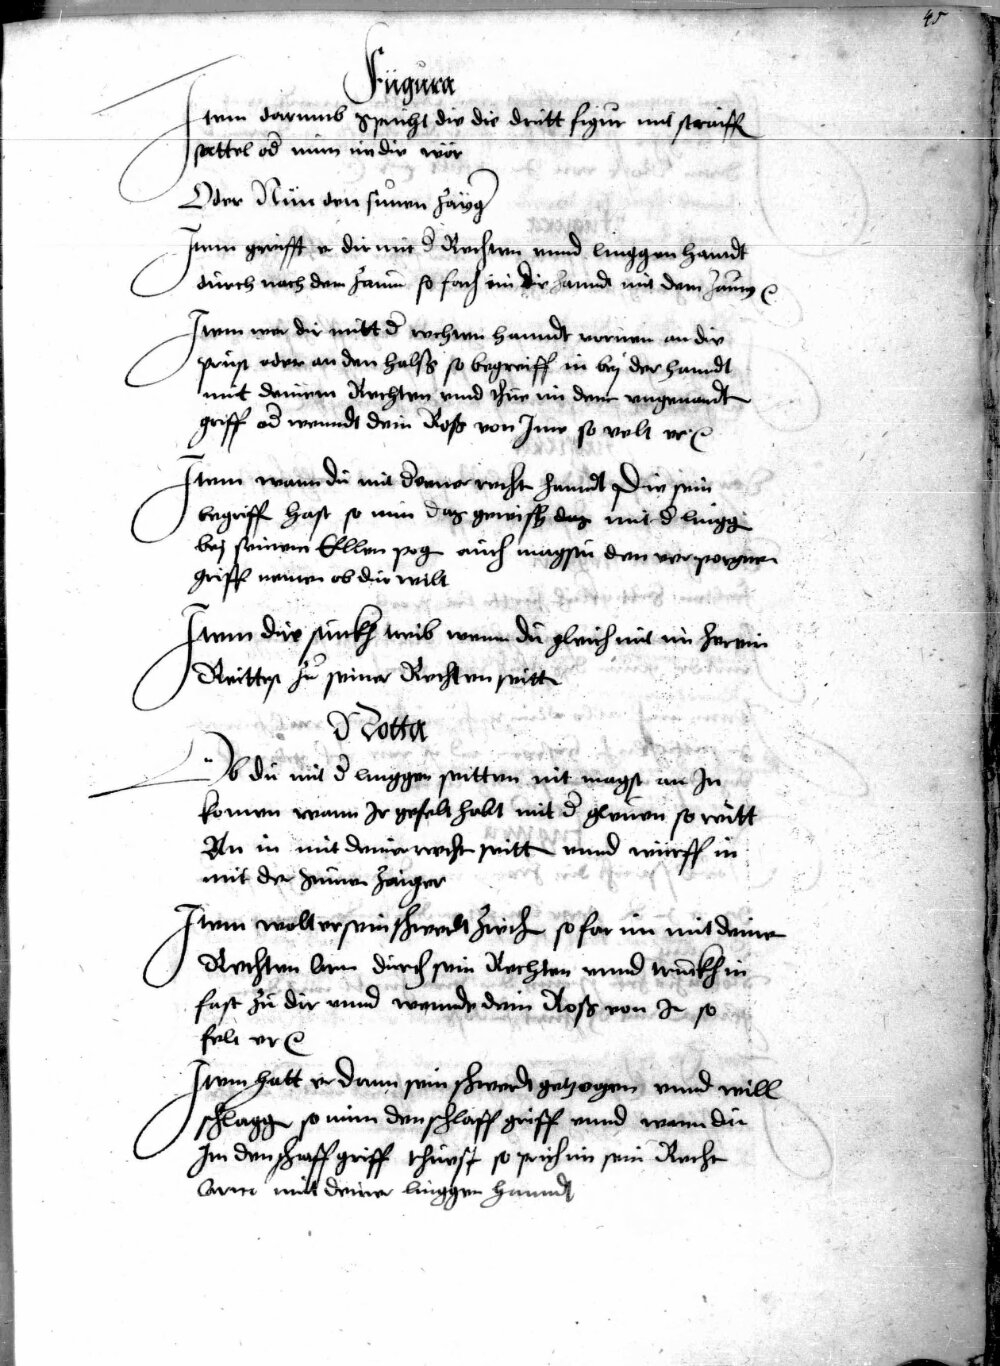 45
Figura
Item darumb spricht die die dritt figur mit straiff
sattel od nim im die wör
Oder Nim den sunen zaÿg
Item greifft er dir mit d Rechten vnnd linggen hanndt
durch nach dem zaum so fach im die hanndt mit dem zaum
Item wer dir mitt d rechten hanndt vornen an die
prust oder an den halsß so begreiff in beÿ der hanndt
mit deinem Rechten vnnd thue im den vngenandt
griff od wenndt dein Roß von Ime so velt er
Item wann du mit deiner recht hanndt Die sein
begriff hast so nim das gewisß das mit d lingg
beÿ seinem Ellen pog auch magstu den verporgnen
griff nemen ob du wilt
Item die stuckh treib wenn du gleich mit im herein
Reittest zu seiner Rechten seitt
Notta
Ob du mit d linggen seitten nit magst an In
komen wann Ir gefelt habt mit d glenen so reitt
An in mit deiner recht seitt vnnd würff in
mit der sunen zaiger
Item wolt er sein schwerdt zuch so far im mit deine
Rechten Arm durch sein Rechten vnnd truckh in
fast zu dir vnnd wennde dein Roß von Im so
felt er
Item hatt er dann sein schwerdt getzogen vnnd will
schlagg so nim den schlaff griff vnnd wenn du
Im den schlaff griff thuest so prich im sein Recht
Arm mit deiner linggen hanndt